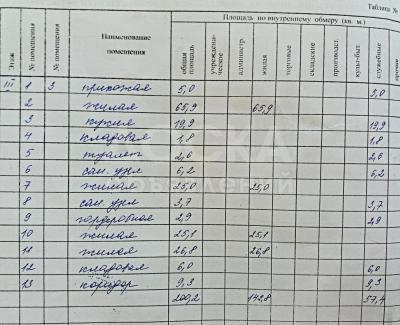 Таблица №
Этаж № помещения № помещения Наименование помещения Площадь по внутреннему обмеру (кв. м.)
общая площадь учрежденческое администр. жилая торговые складские производст. культ-быт. служебные прочие
III 1 3 прихожая 5,0 5,0
2 жилая 65,9 65,9
3 кухня 19,9 19,9
4 кладовая 1,8 1,8
5 туалет 2,6 2,6
6 сан. узл 6,2 6,2
7 жилая 25,0 25,0
8 сан. узл 3,7 3,7
9 гардеробная 2,9 2,9
10 жилая 25,1 25,1
11 жилая 26,8 26,8
12 кладовая 6,0 6,0
13 коридор 9,3 9,3
200,2 142,8 57,4